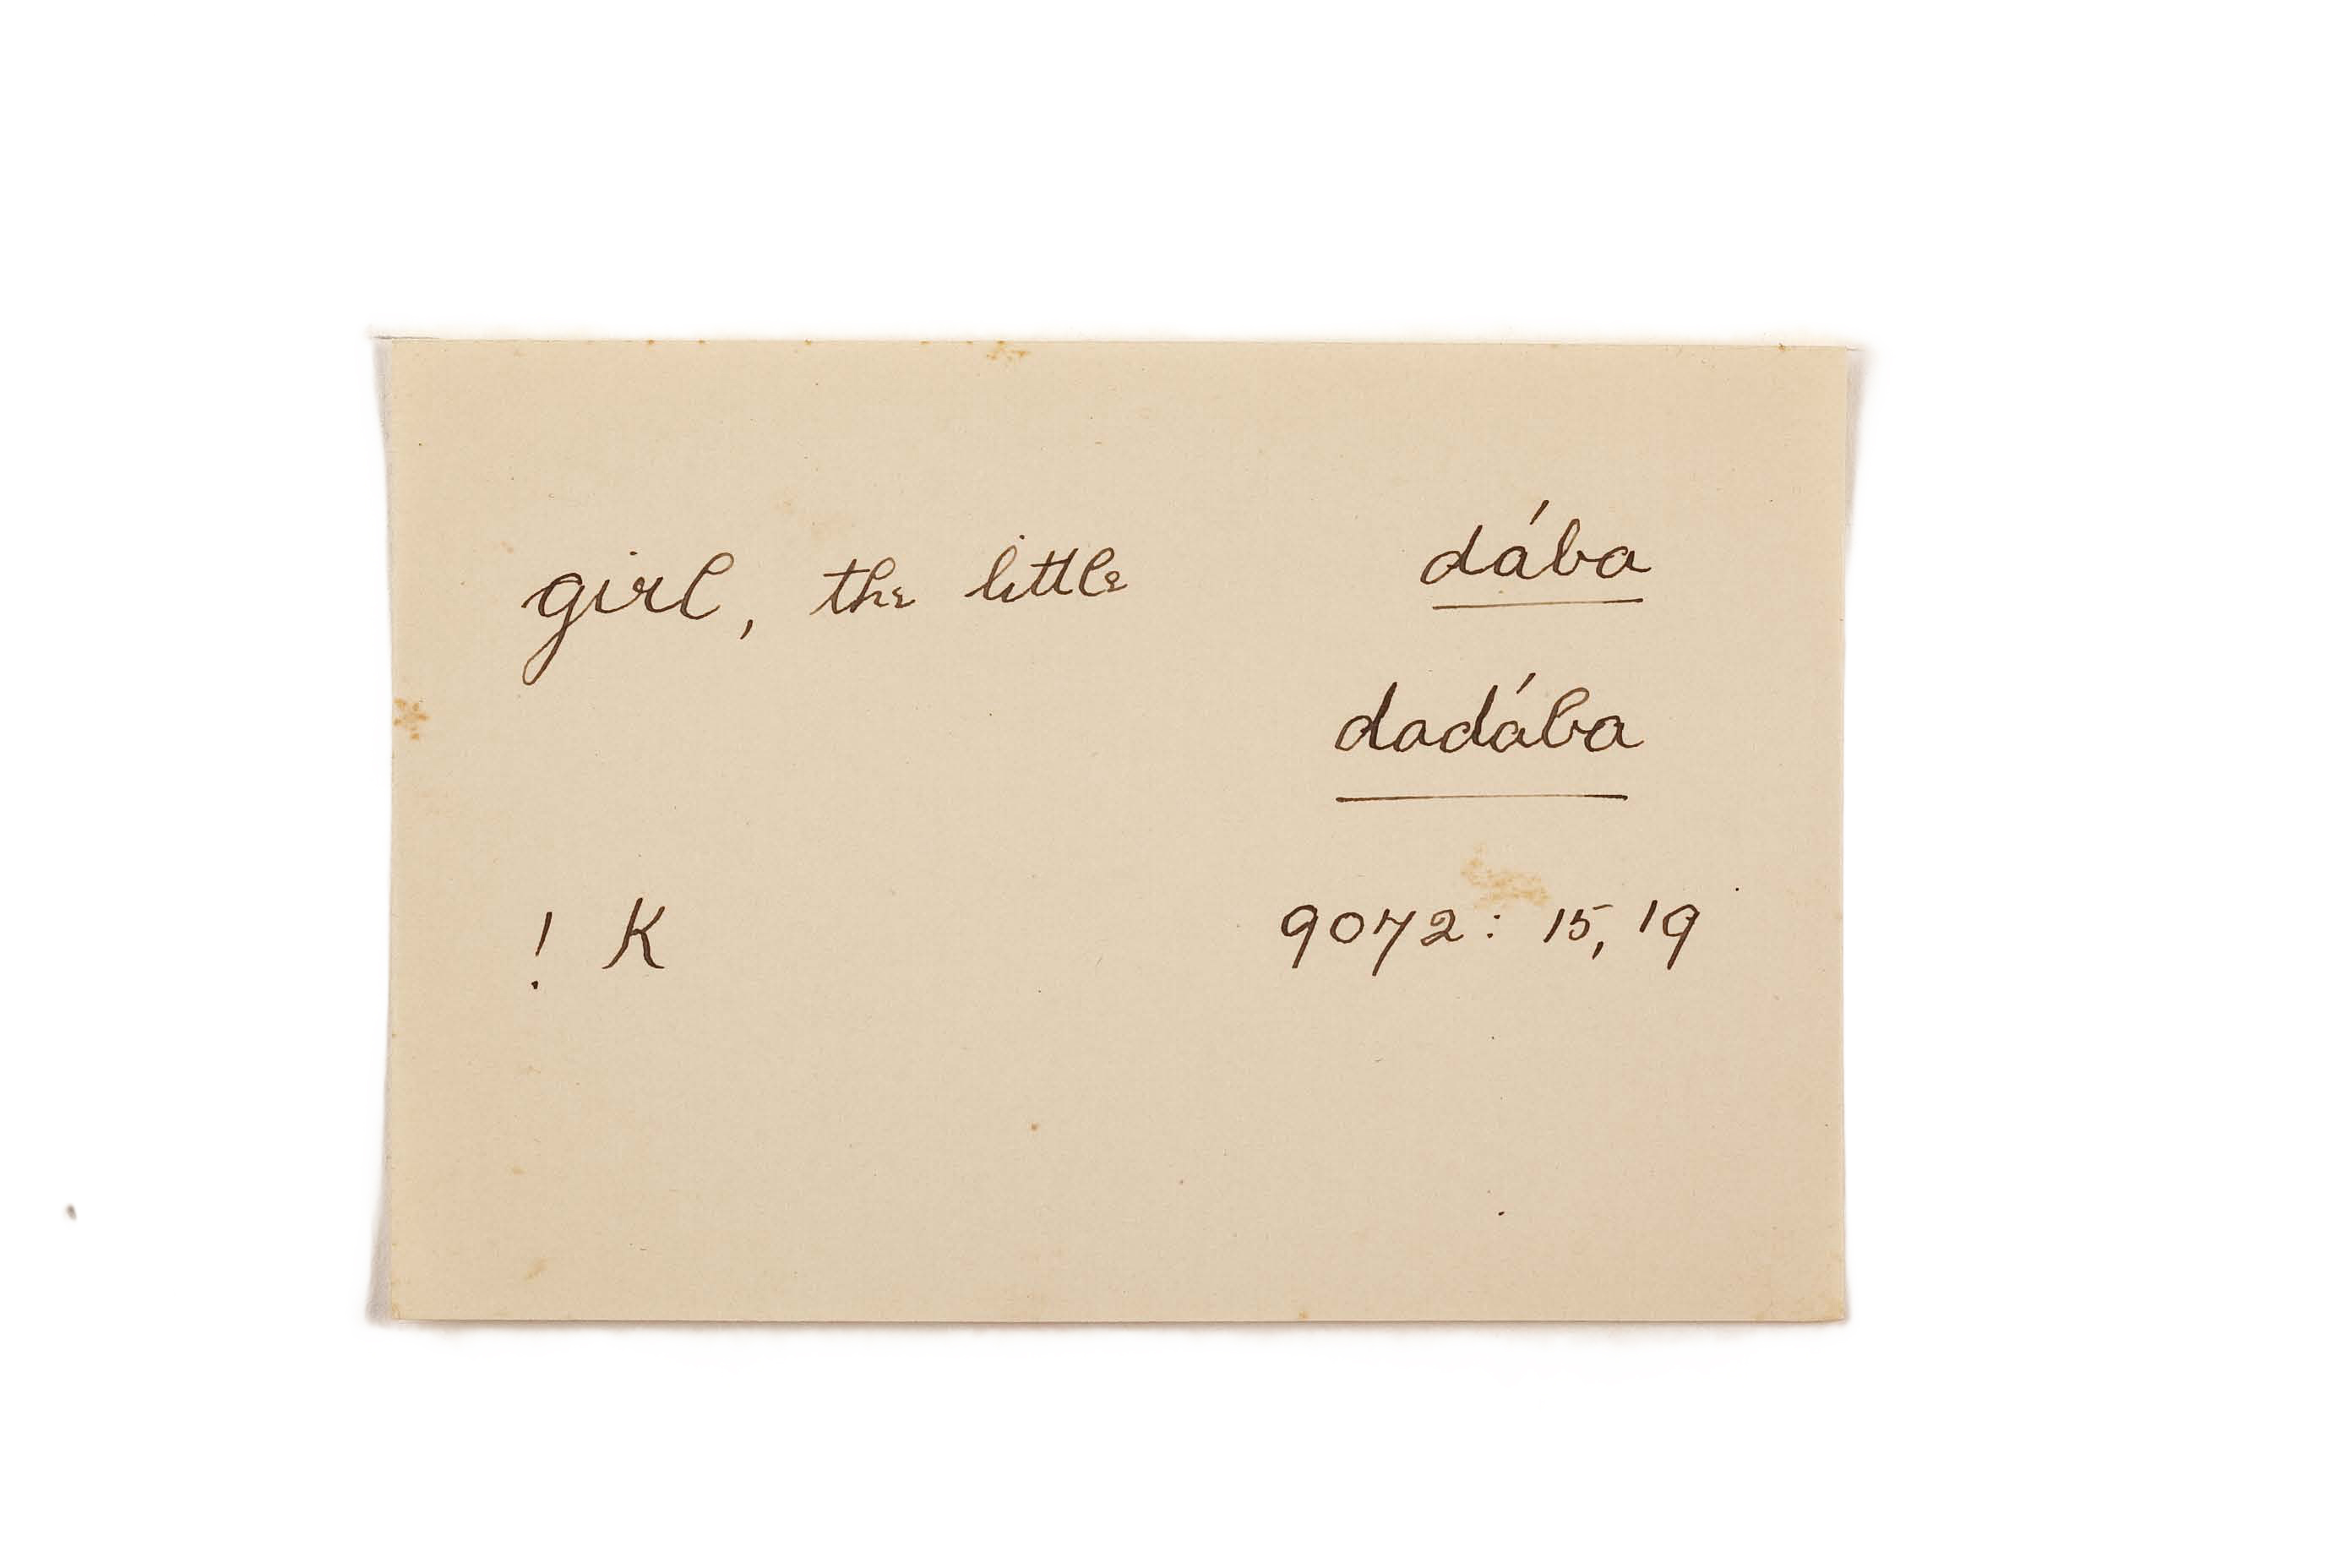 girl, the little dába
dadába
! K 9072: 15, 19